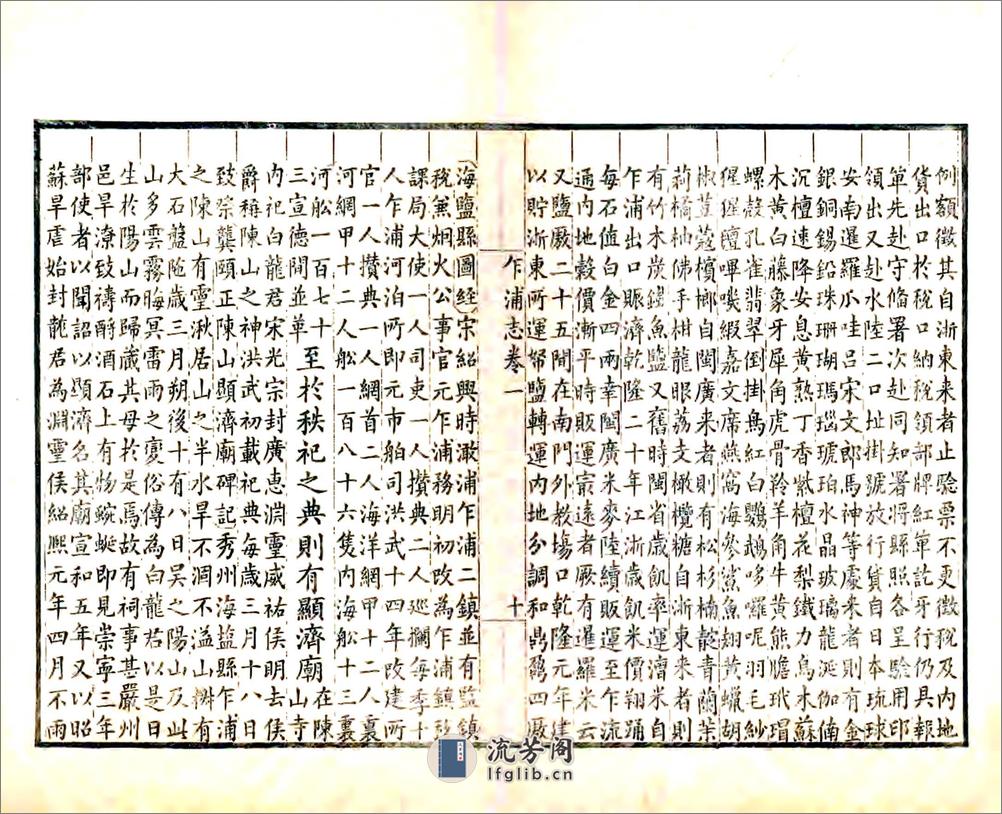 例額徵其自浙東来者止驗票不更徵稅及内地
貨出口於稅口納稅領部牌紅单託牙行仍具報
单先赴守俻署次赴同知署将縣照各呈驗用印
領出又赴水陸二口址掛號放行貨自日本琉球
安南暹羅爪哇吕宋文郎馬神等處来者則有金
銀銅錫鉛珠珊瑚瑪瑙琥珀水晶玻璃龍涎伽俑
沉檀速降安息黄熟丁香紫檀花梨鐵力烏木蘇
木黄白藤象牙犀角虎骨羚羊角黄蠟熊膽玳瑁
螺殼孔雀翡翠倒掛鳥紅白鸚鵡哆囉呢羽毛紗
猩猩氊嗶嘰緞嘉文席燕窩海參鯊魚翅黄蠟胡
椒荳蔻檳榔自閩廣来者則有松杉楠靛青蘭茉
莉橘柚佛手柑龍眼荔支橄欖糖自浙東来者則
有竹木炭鐵魚鹽又舊時閩省歲飢率運漕米自
乍浦出口賑濟乾隆二十年江浙歲飢米價翔踊
每石值白金四兩幸閩廣米麥陸續販運至乍流
通内地穀價漸平時販運寂遠者厥有暹羅米云
又鹽厰二十五間在南門外教塲口乾隆元年建
以貯浙東所運帑鹽轉運内地分調和鼎鬺四厰
乍浦志卷一
十
海鹽縣圖經宋紹興時澉浦乍浦二鎮並有監鎮
稅兼烟火公事官元乍浦務明初改為乍浦鎮稅
課局大使一人司吏一人攢典二人廵攔每季十
人乍浦河泊所即元市舶司洪武十四年改建所
官一人攢典一人網首二人海洋網甲十二人裏
河網甲十二人船一百八十六隻内海船十三裏
河船一百七十三宣德間並革
至於秩祀之典則有顯濟廟在陳山寺
内祀白龍君宋光宗封廣惠淵靈威祐侯明去侯
爵稱陳山之神洪武初載祀典每歲三月十八日
致祭龔頤正陳山顯濟廟碑記秀州海盐縣乍浦
之陳山有靈湫居山之半水旱不涸不溢山椒有
大石盤陁歲三月朔後十有八日吴之陽山及此
山多雲霧晦冥雷雨之變俗傳為白龍君以是日
生於陽山而歸藏其母於是焉故有祠事甚嚴州
邑旱潦致禱酹酒石上有物蜿蜒即見崇寧三年
部使者以聞詔以顯濟名其廟宣和五年又以昭
蘇旱虐始封龍君為淵靈侯紹熙元年四月不雨
流芳阁
lfglib.cn